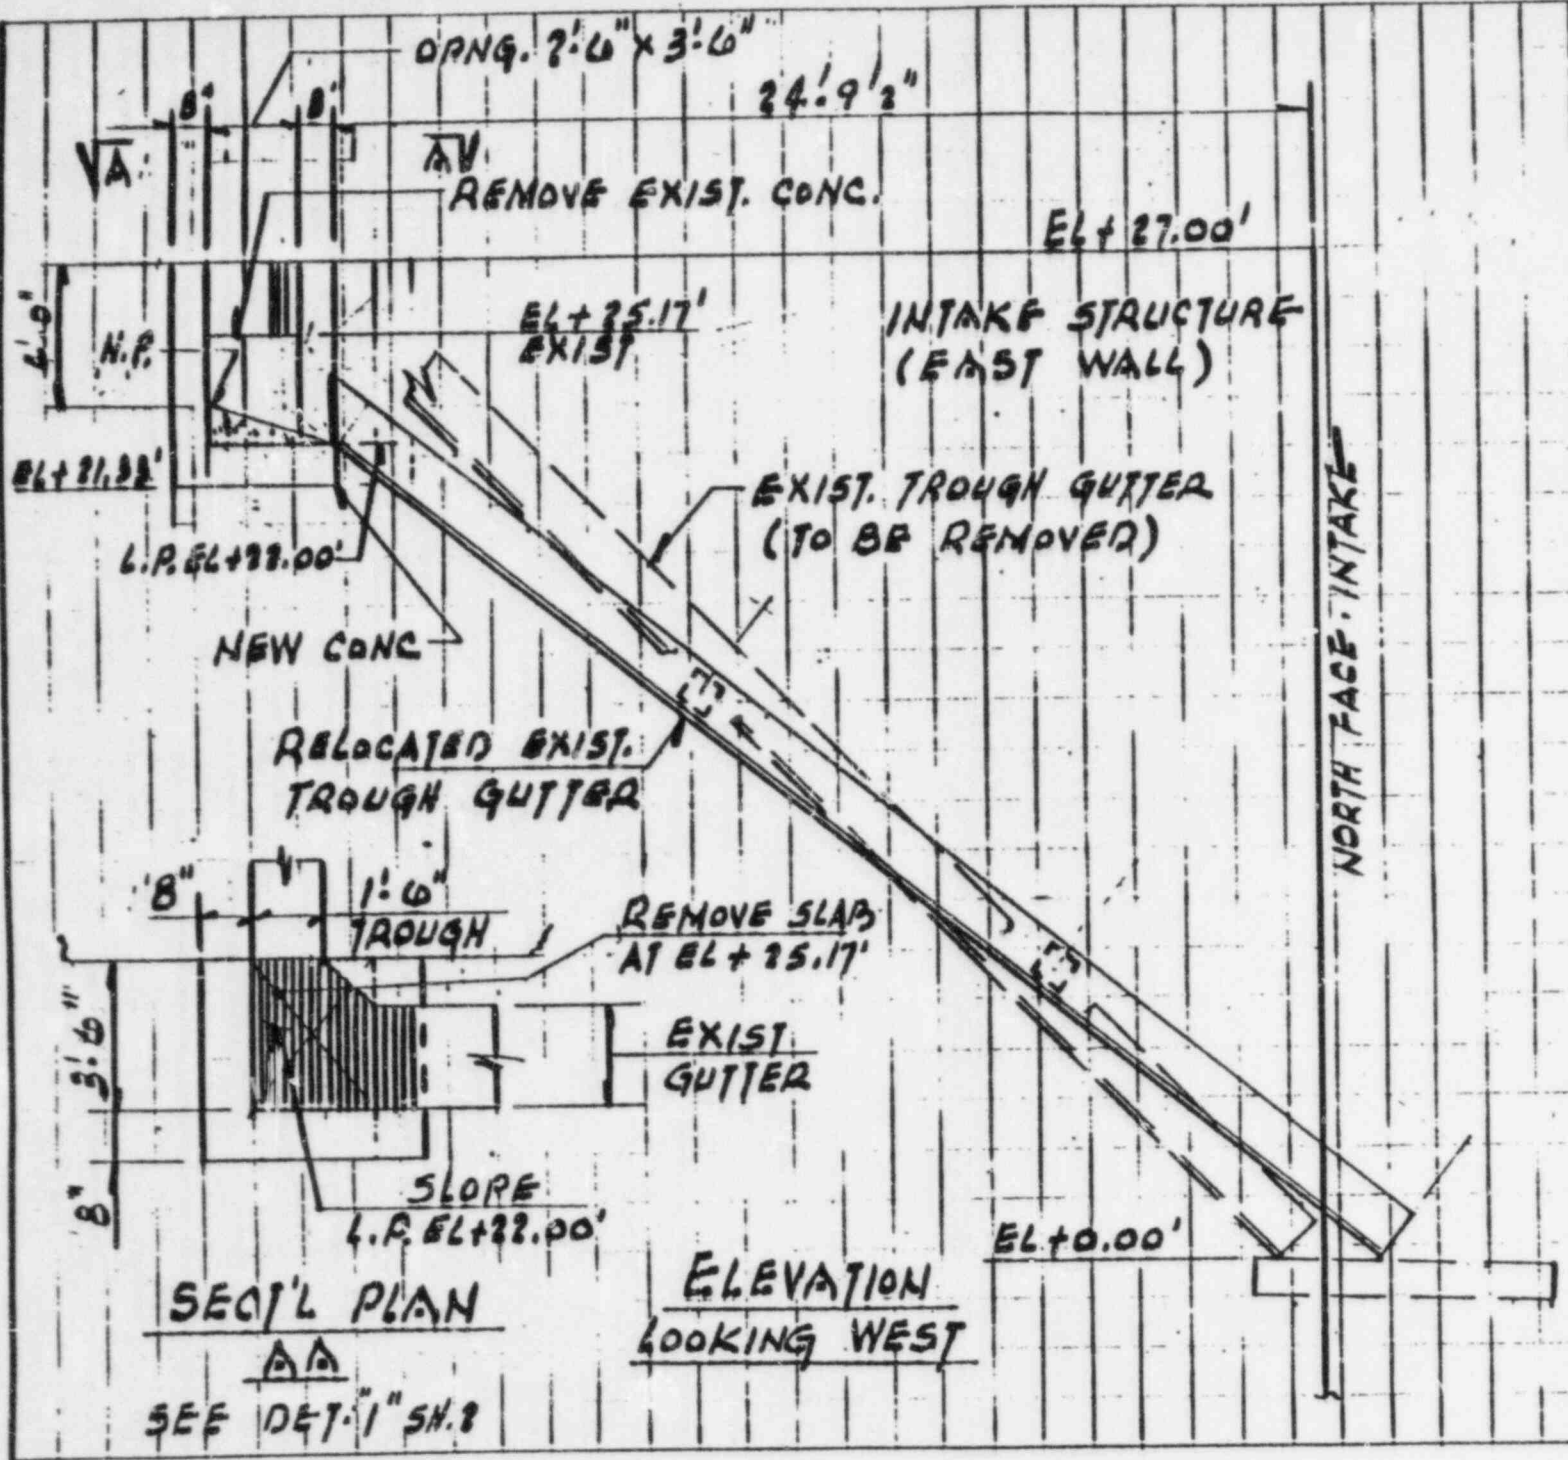 OPNG. 2'-6" x 3'-6"
24'-9 1/2"
8" 8"
A A
REMOVE EXIST. CONC.
EL + 27.00'
EL + 25.17'
EXIST
INTAKE STRUCTURE
(EAST WALL)
EXIST. TROUGH GUTTER
(TO BE REMOVED)
L.P. EL+22.00'
NEW CONC
NORTH FACE INTAKE
RELOCATED EXIST.
TROUGH GUTTER
8" 1'-6"
TROUGH
REMOVE SLAB
AT EL + 25.17'
3'-6"
EXIST
GUTTER
8"
SLOPE
L.P. EL+22.00'
EL+0.00'
SECT'L PLAN
AA
SEE DET. "1" SH. 2
ELEVATION
LOOKING WEST